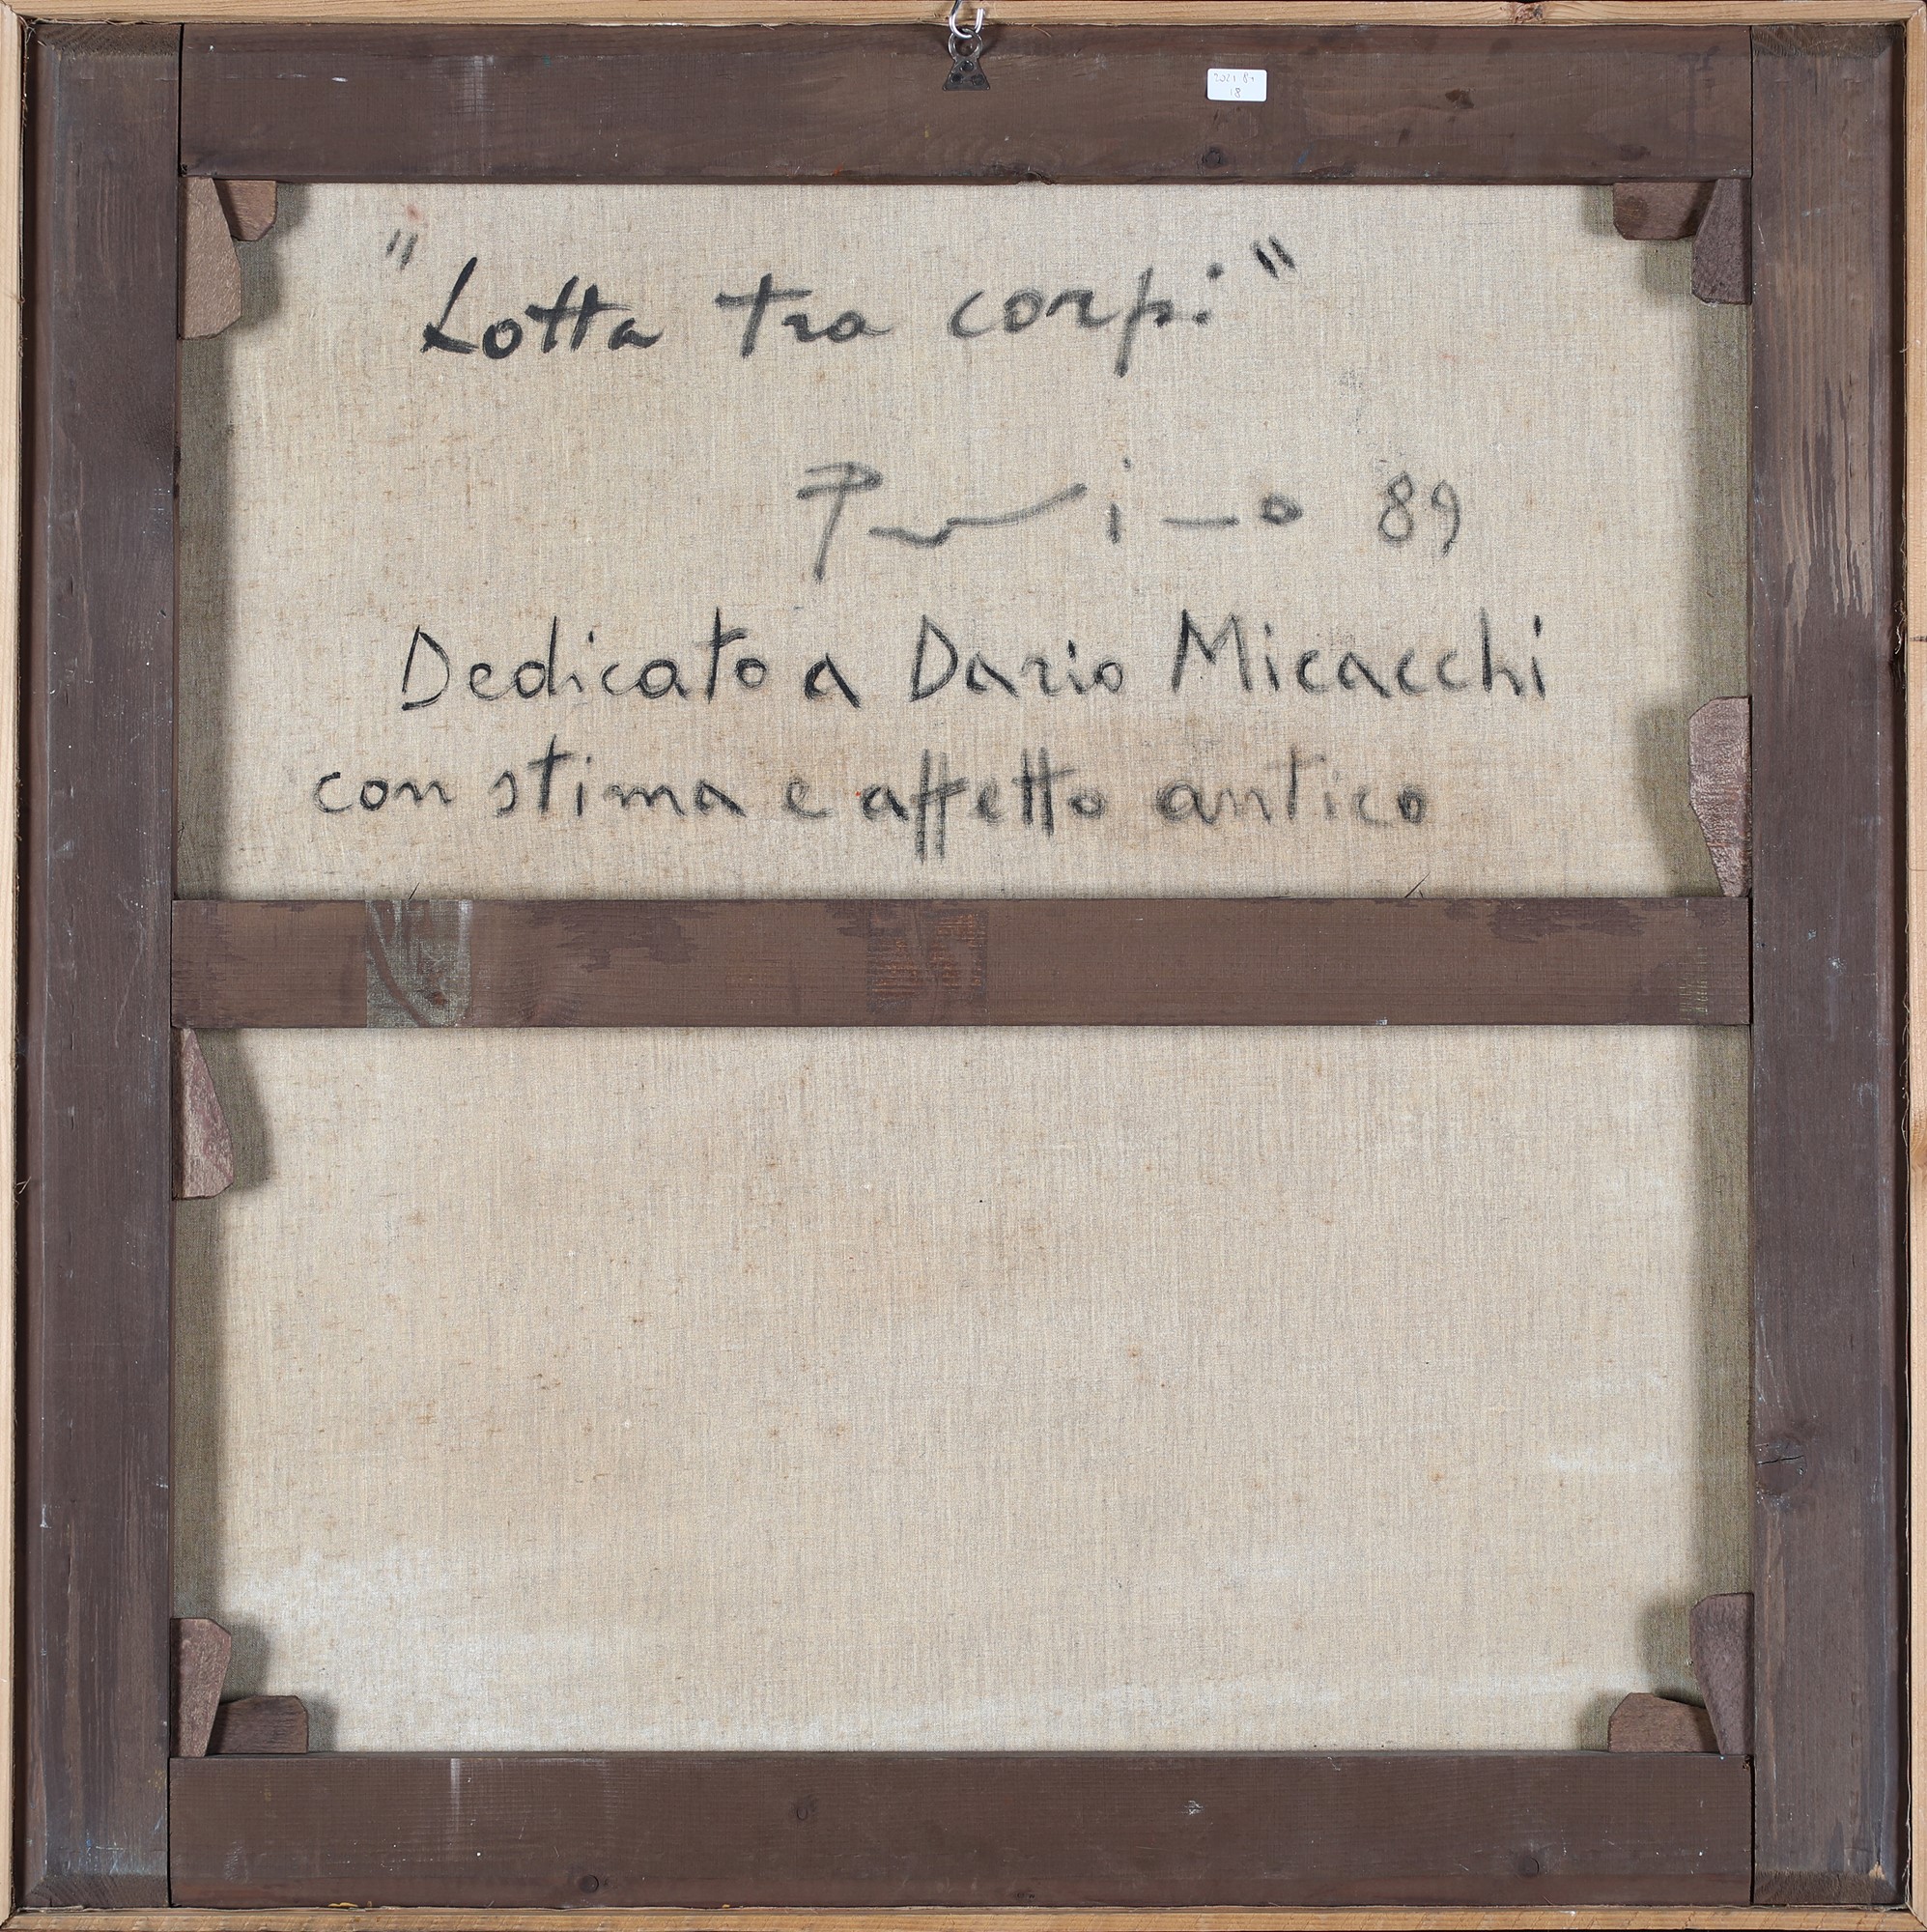 "Lotta tra corpi"
89
Dedicato a Dario Micacchi
con stima e affetto antico
18